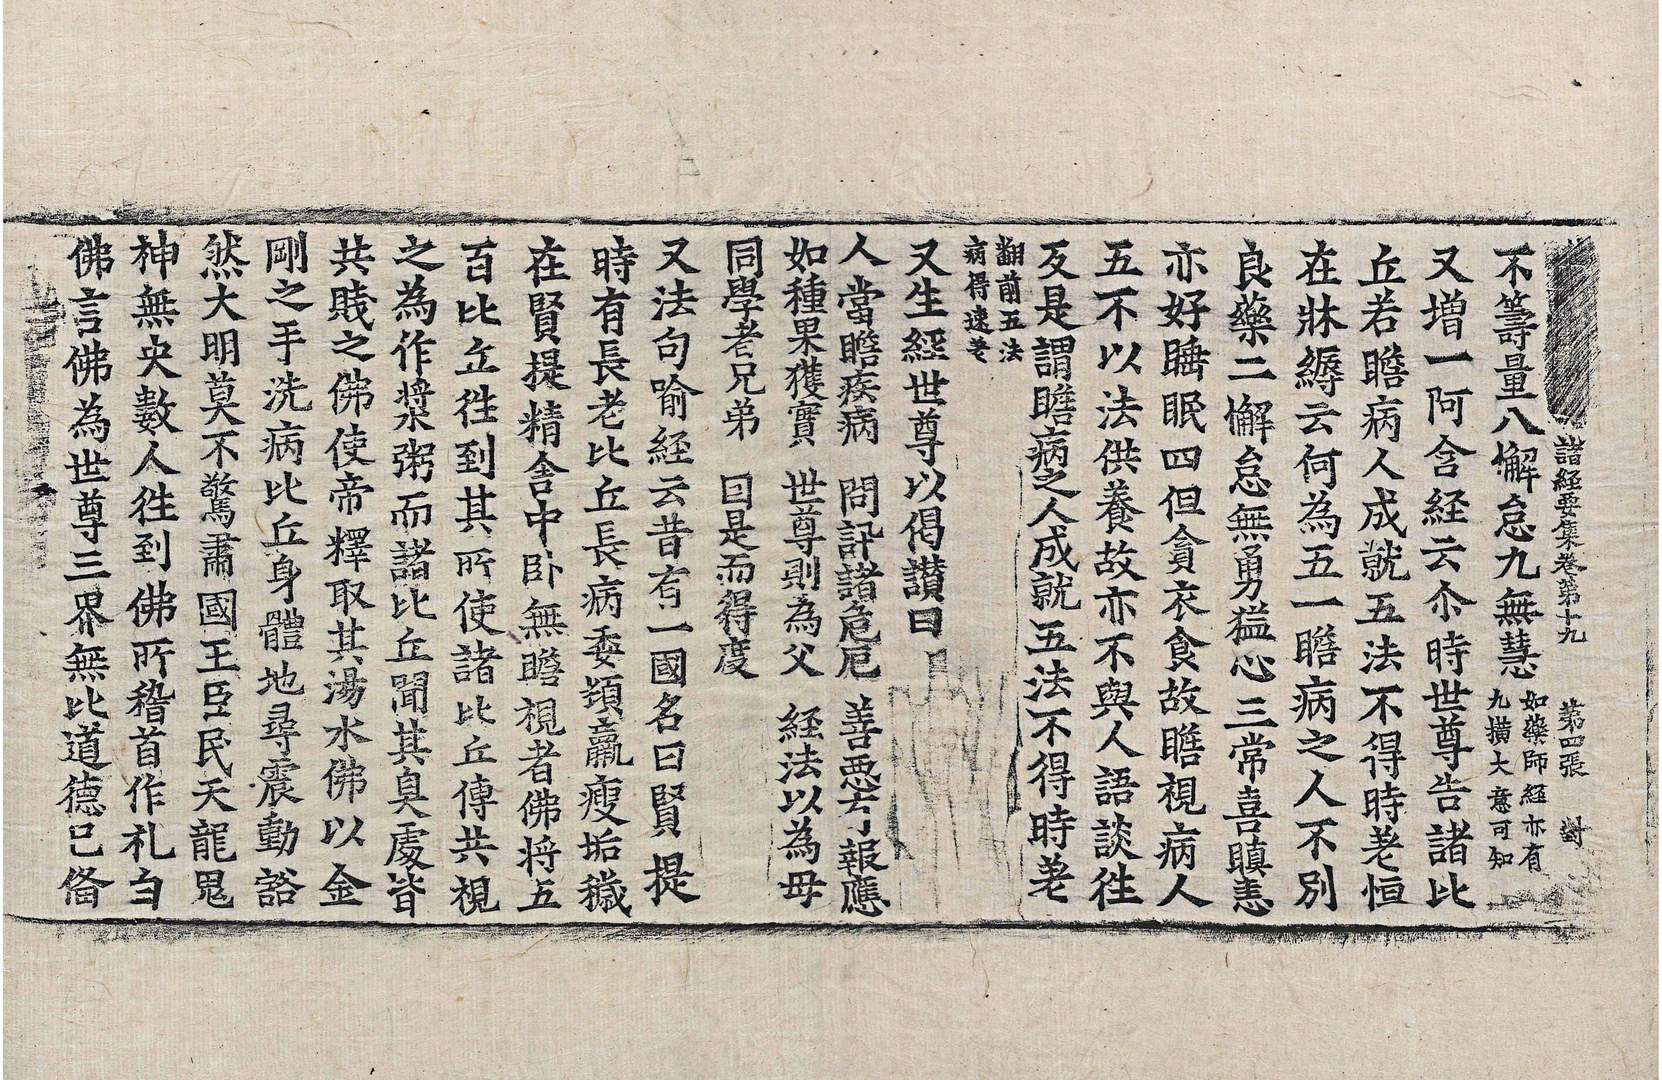 諸経要集卷第十九 第四張 對
不籌量八懈怠九無慧如藥師経亦有九横大意可知
又增一阿含経云尒時世尊告諸比
丘若瞻病人成就五法不得時差恒
在牀縟云何為五一瞻病之人不別
良藥二懈怠無勇猛心三常喜瞋恚
亦好睡眠四但貪衣食故瞻視病人
五不以法供養故亦不與人語談往
反是謂瞻病之人成就五法不得時差
翻前五法病得速差
又生經世尊以偈讃曰
人當瞻疾病 問訊諸危厄 善惡有報應
如種果獲實 世尊則為父 経法以為母
同學者兄弟 因是而得度
又法句喻経云昔有一國名曰賢提
時有長老比丘長病委頓羸瘦垢穢
在賢提精舍中卧無瞻視者佛将五
百比丘徃到其所使諸比丘傳共視
之為作漿粥而諸比丘聞其臭處皆
共賤之佛使帝釋取其湯水佛以金
剛之手洗病比丘身體地尋震動豁
然大明莫不驚肅國王臣民天龍鬼
神無央數人徃到佛所稽首作礼白
佛言佛為世尊三界無比道德已俻